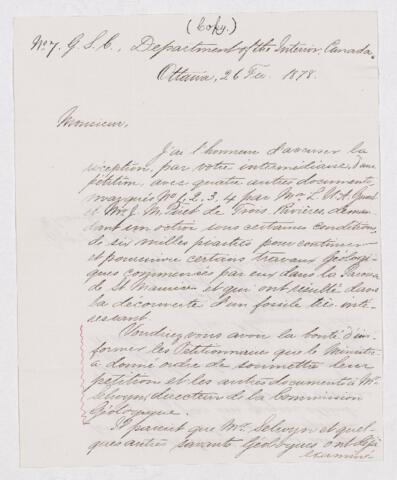 (Copy.)
No 7. G. S. C., Department of the Interior, Canada,
Ottawa, 26 Fev. 1878.
Monsieur,
J'ai l'honneur d'accuser la
réception, par votre intermédiaire, d'une
pétition, avec quatre autres documents
marqués Nos 1. 2. 3. 4 par L. U. A.
et J. M. de Trois Rivières deman
dant un octroi sous certaines conditions
de six milles piastres pour continuer
et poursuivre certains travaux Géologi
ques commencés par eux dans la
de St Maurice et qui ont résulté dans
la découverte d'un fossile très inté-
ressant.
Voudrez vous avoir la bonté d'in-
former les Pétitionnaires que le Ministre
a donné ordre de soumettre leur
pétition et les autres documents à Mr.
Selwyn, directeur de la Commission
Géologique.
Il parait que Mr. Selwyn et quel-
ques autres savants Géologues ont déjà
examiné